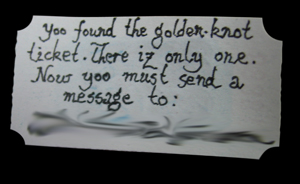 yoo found the golden-knot
ticket. There iz only one.
Now yoo must send a
message to: